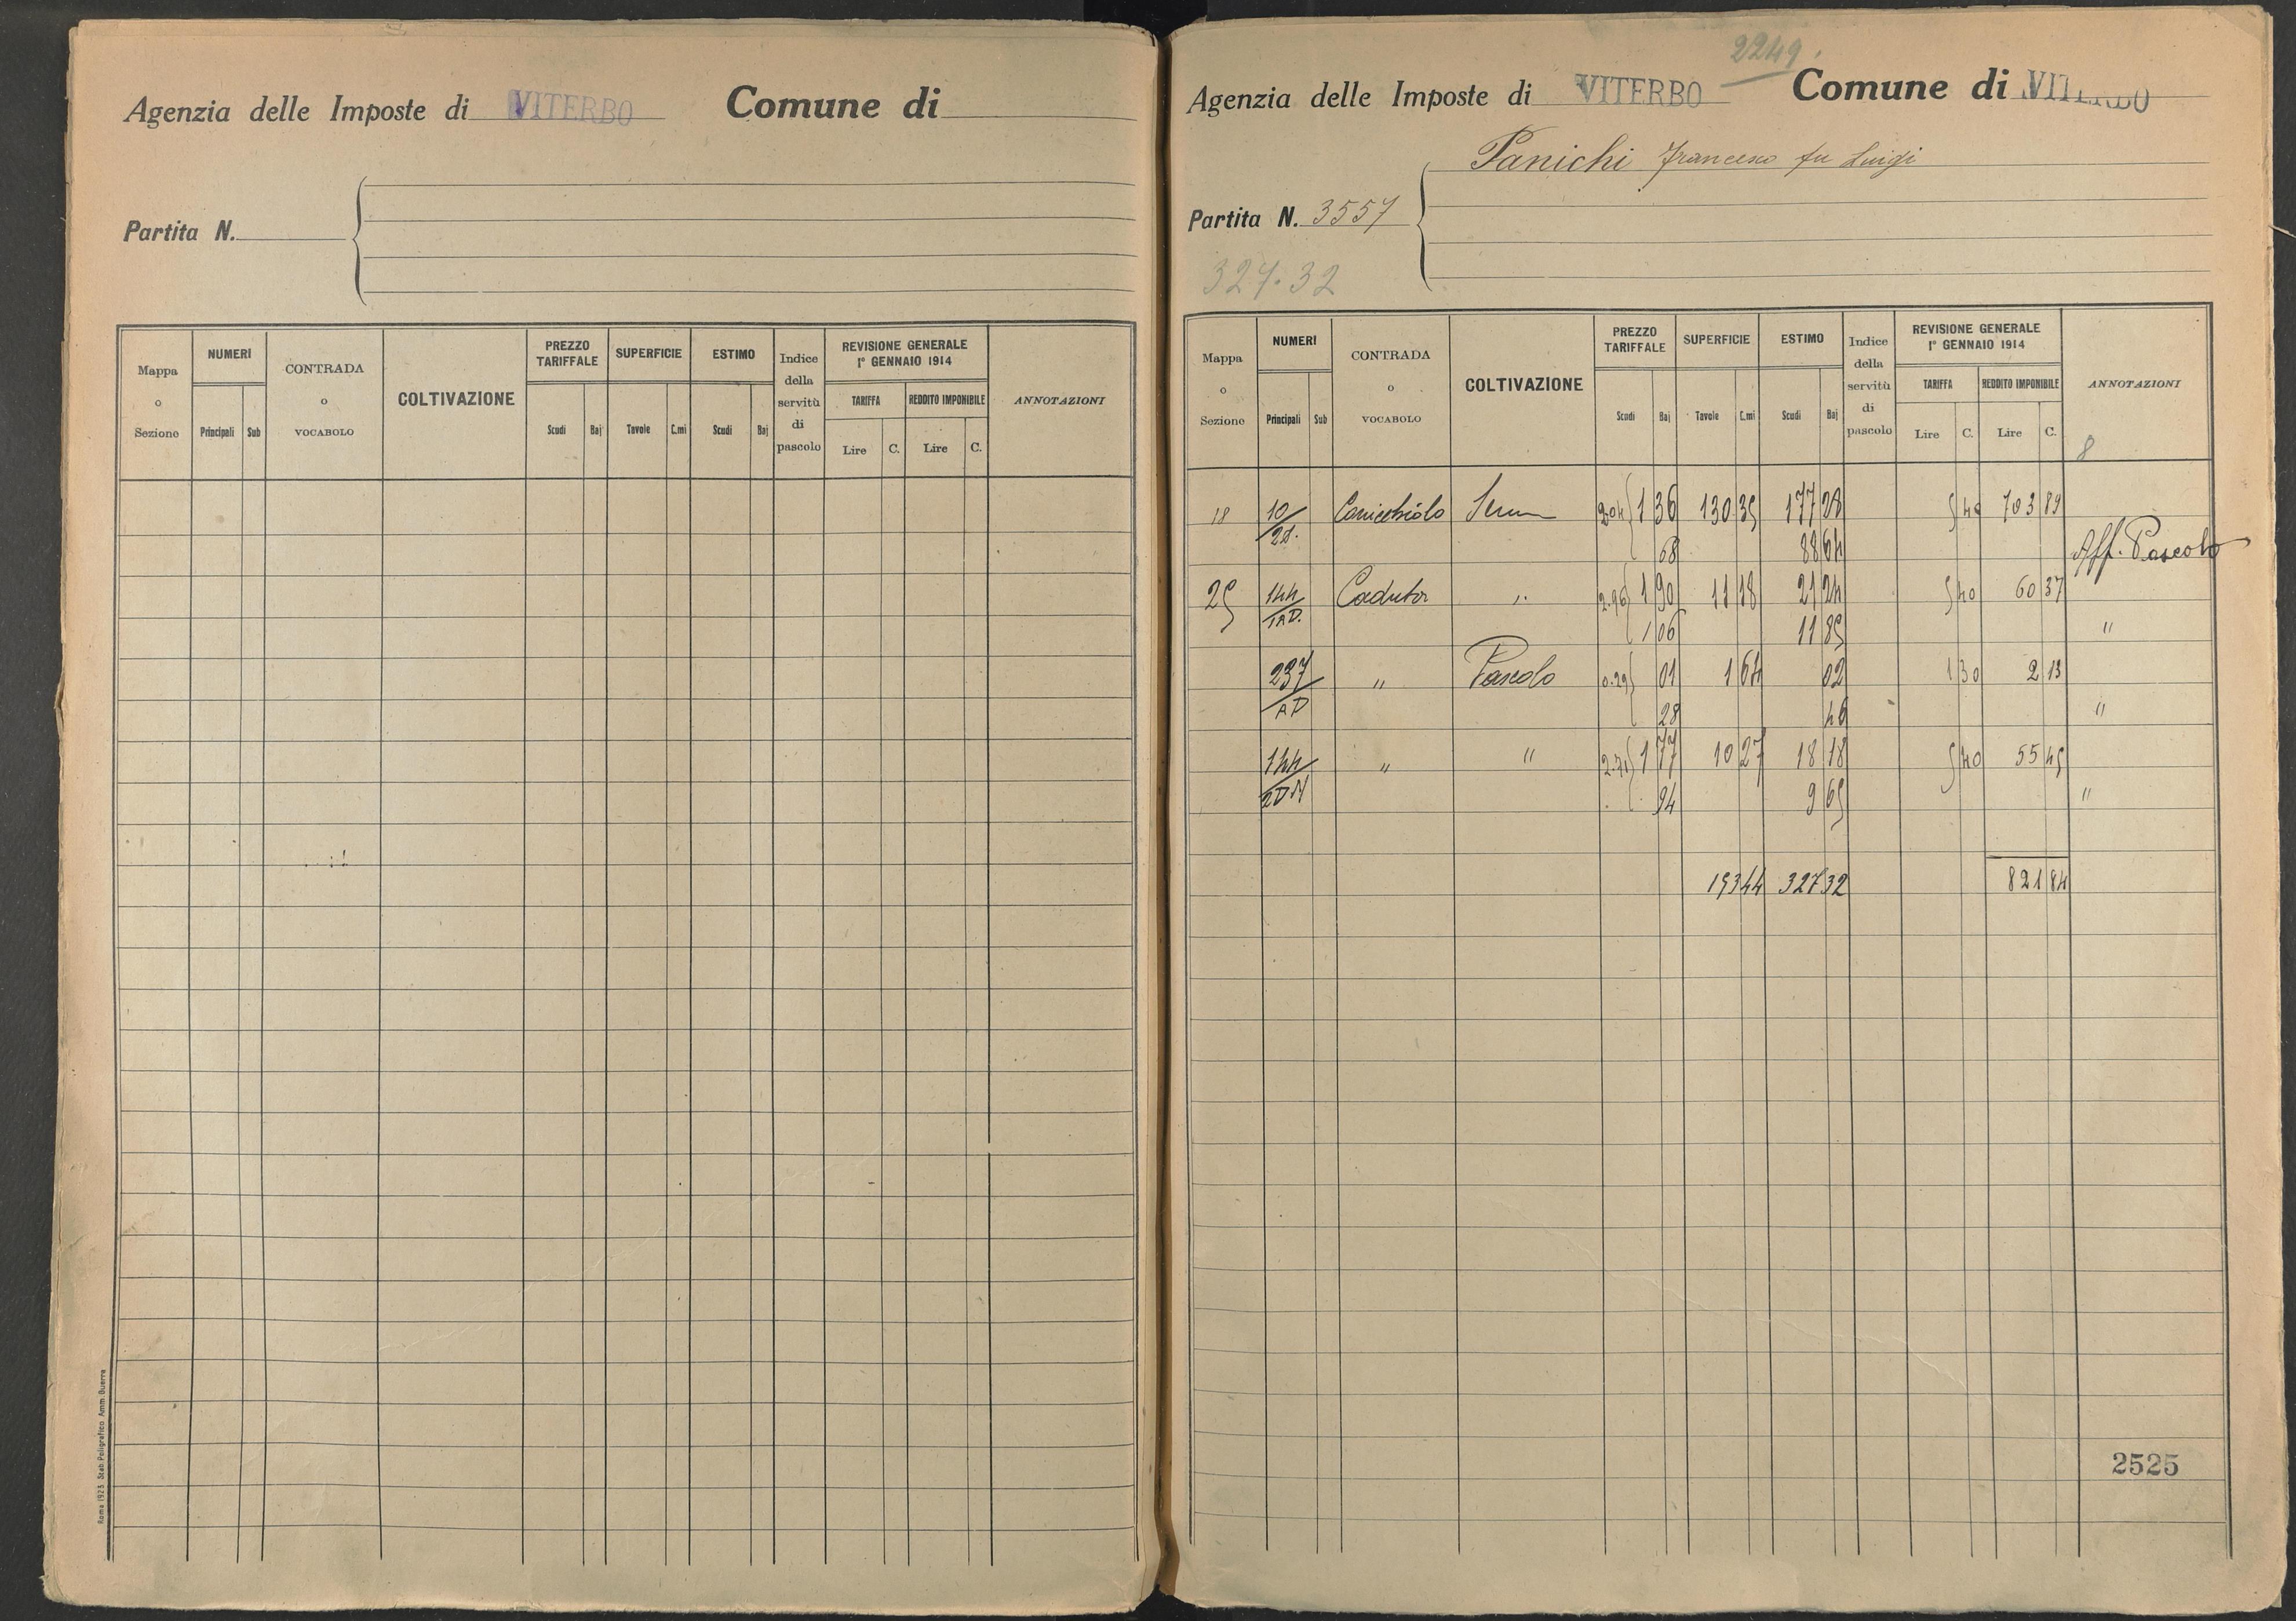 Agenzia delle Imposte di VITERBO Comune di
Partita N.
Mappa o Sezione
NUMERI
Principali Sub
CONTRADA o VOCABOLO
COLTIVAZIONE
PREZZO TARIFFALE
Scudi Baj
SUPERFICIE
Tavole C.mi
ESTIMO
Scudi Baj
Indice della servitù di pascolo
REVISIONE GENERALE
1° GENNAIO 1914
TARIFFA
Lire C.
REDDITO IMPONIBILE
Lire C.
ANNOTAZIONI
Roma 1923 Stab. Poligrafico Amm. Guerra
2249.
Agenzia delle Imposte di VITERBO Comune di VITERBO
Panichi Francesco fu Luigi
Partita N. 3557
327.32
Mappa o Sezione
NUMERI
Principali Sub
CONTRADA o VOCABOLO
COLTIVAZIONE
PREZZO TARIFFALE
Scudi Baj
SUPERFICIE
Tavole C.mi
ESTIMO
Scudi Baj
Indice della servitù di pascolo
REVISIONE GENERALE
1° GENNAIO 1914
TARIFFA
Lire C.
REDDITO IMPONIBILE
Lire C.
ANNOTAZIONI
8
18 10/2d. Sem 2.04 1 36 130 35 177 28 5 40 703 89
68 88 64 Aff. Pascolo
25 144/1AD. " 2.96 1 90 11 18 21 24 5 40 60 37
1 06 11 85 "
237/AD " Pascolo 0.29 01 1 64 02 1 30 2 13
28 46 "
144/2DN " " 2.71 1 77 10 27 18 18 5 40 55 45
94 9 65 "
153 44 327 32 821 84
2525